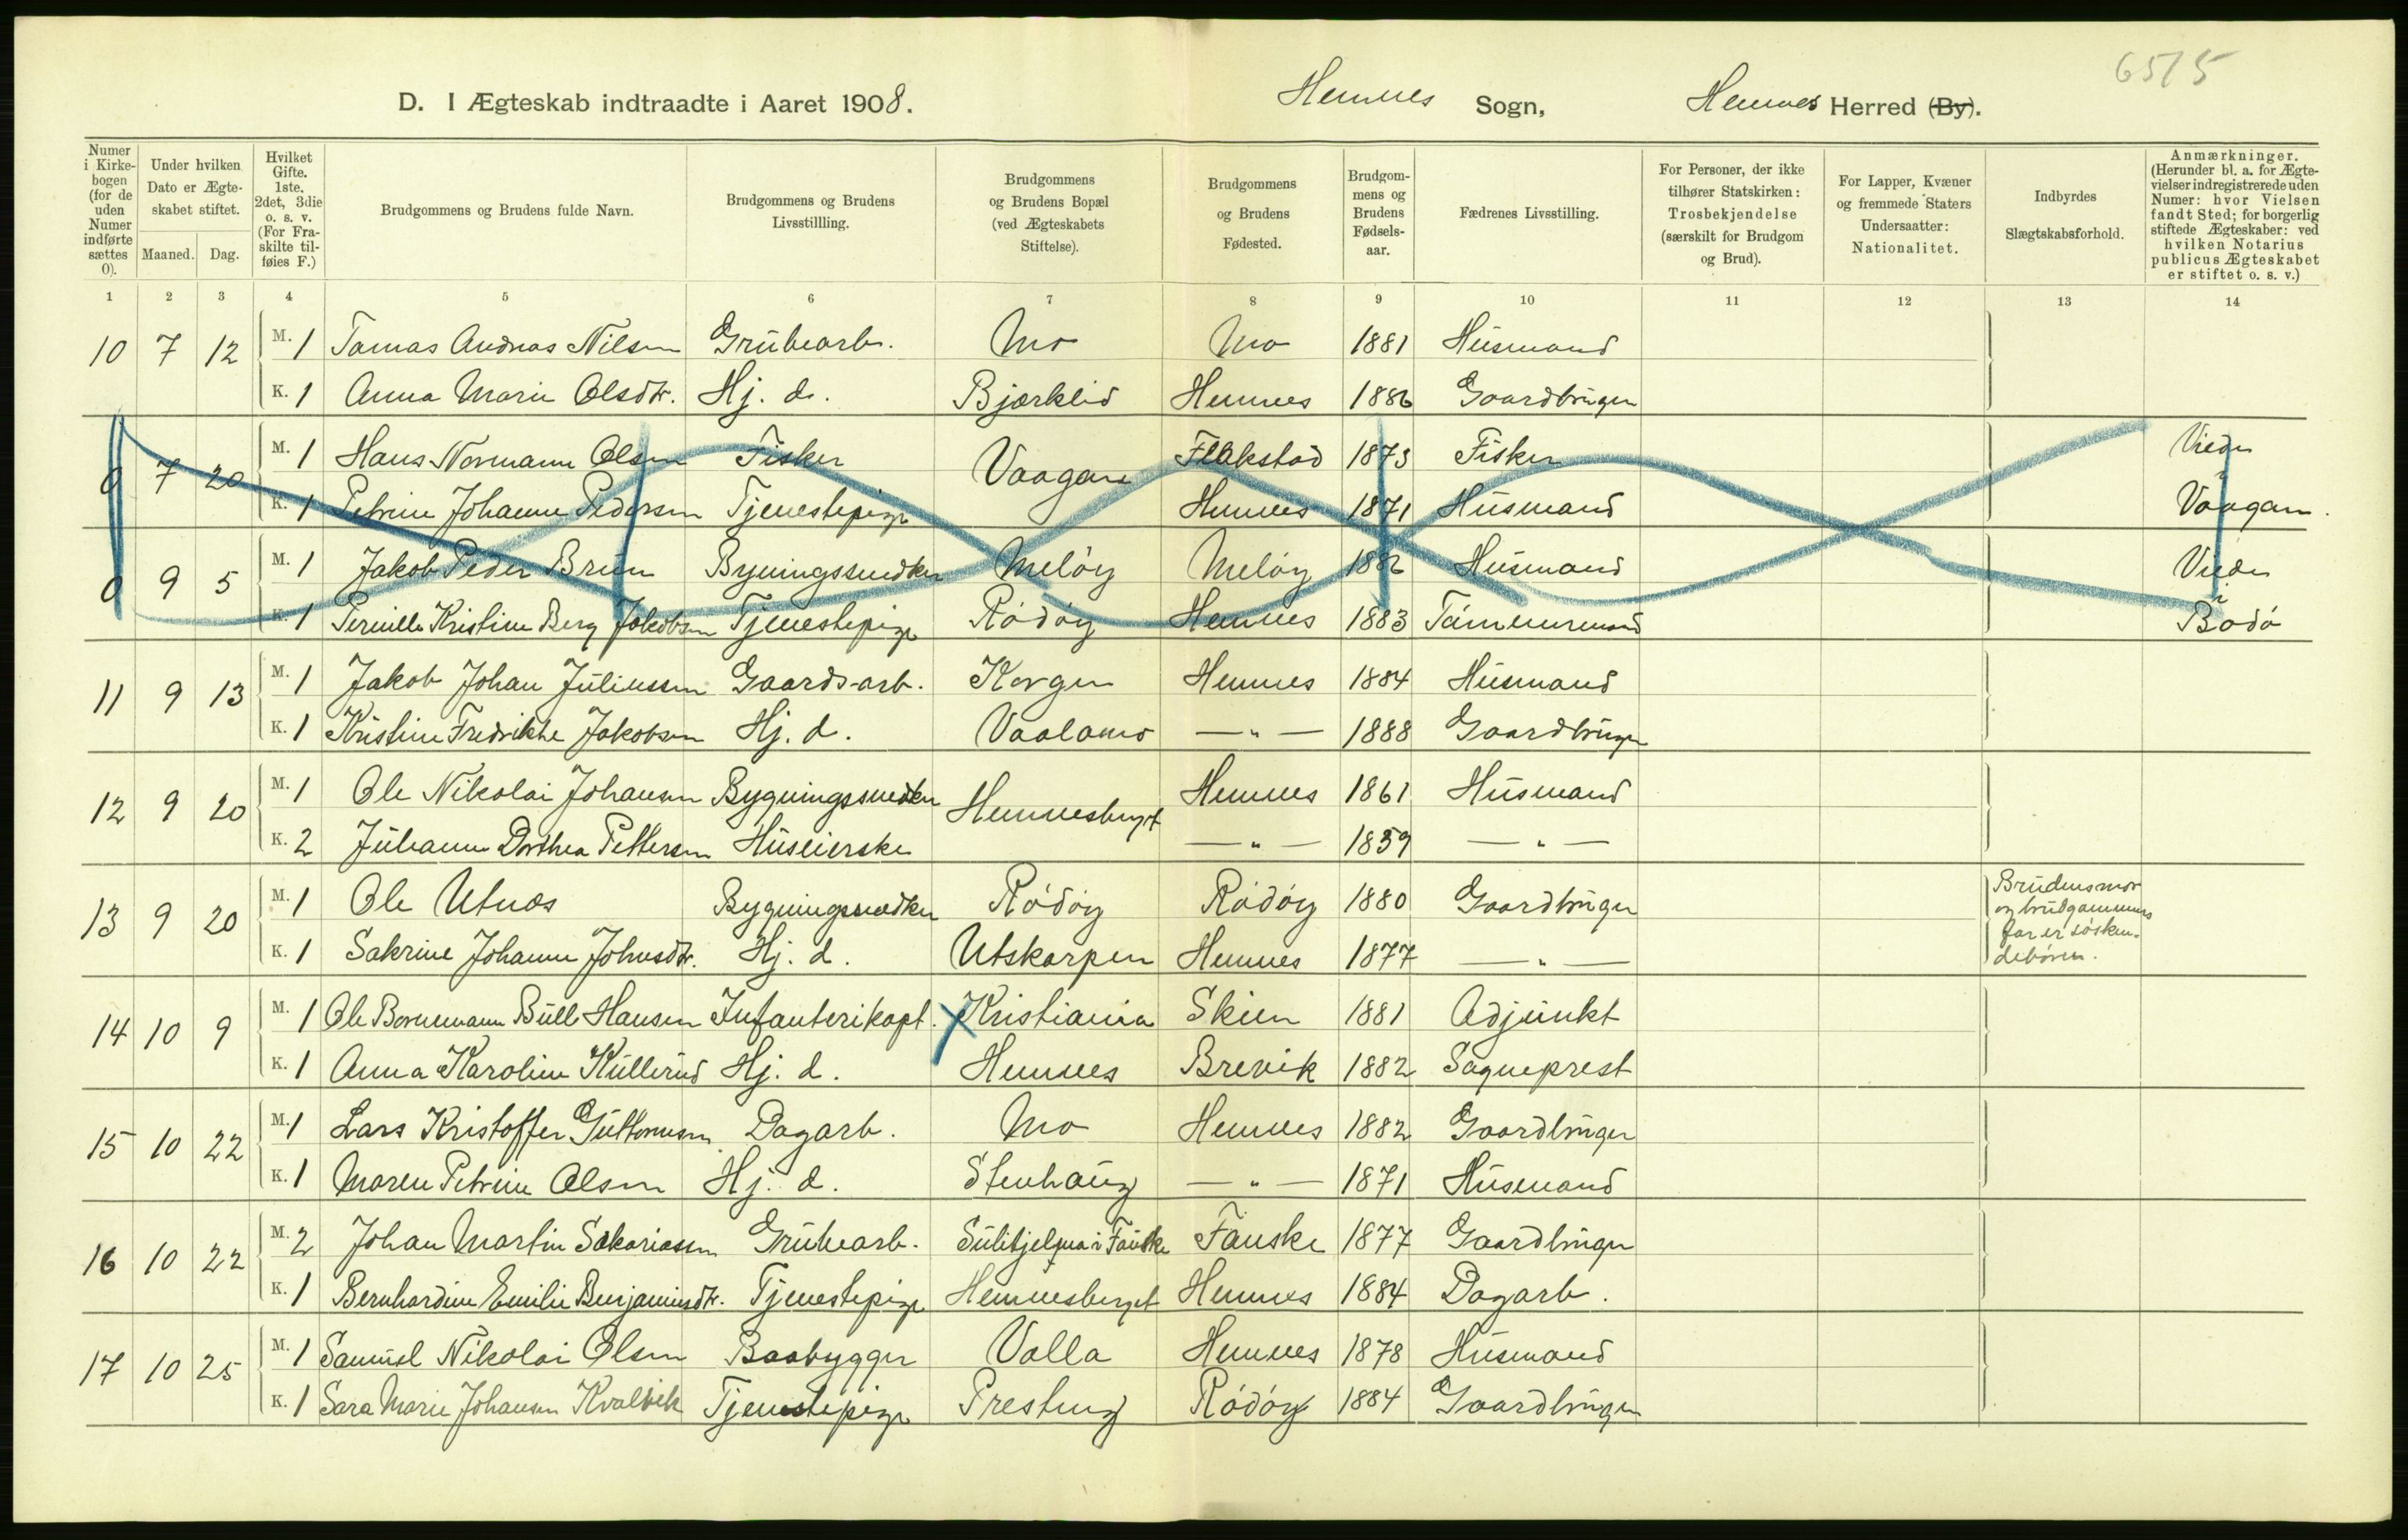 6515
D. I Ægteskab indtraadte i Aaret 1908. Hemnes Sogn, Hemnes Herred (By).
Numer i Kirkebogen (for de uden Numer indførte sættes 0).
Under hvilken Dato er Ægteskabet stiftet.
Maaned. Dag.
Hvilket Gifte. 1ste. 2det, 3die o. s. v. (For Fraskilte tilføies F.)
Brudgommens og Brudens fulde Navn.
Brudgommens og Brudens Livsstillling.
Brudgommens og Brudens Bopæl (ved Ægteskabets Stiftelse).
Brudgommens og Brudens Fødested.
Brudgommens og Brudens Fødselsaar.
Fædrenes Livsstilling.
For Personer, der ikke tilhører Statskirken: Trosbekjendelse (særskilt for Brudgom og Brud).
For Lapper, Kvæner og fremmede Staters Undersaatter: Nationalitet.
Indbyrdes Slægtskabsforhold.
Anmærkninger. (Herunder bl. a. for Ægtevielser indregistrerede uden Numer: hvor Vielsen fandt Sted; for borgerlig stiftede Ægteskaber: ved hvilken Notarius publicus Ægteskabet er stiftet o. s. v.)
1 2 3 4 5 6 7 8 9 10 11 12 13 14
10 7 12 M. 1 Tomas Andreas Nilsen Grubearb. Mo Mo 1881 Husmand
K. 1 Anna Marie Olsdtr. Hj. d. Bjærklid Hemnes 1886 Gaardbruger
0 7 20 M. 1 Hans Normann Olsen Fisker Vaagan Flakstad 1873 Fisker Viede i
K. 1 Petrine Johanne Pedersen Tjenestepige Hemnes 1871 Husmand Vaagan.
0 9 5 M. 1 Jakob Peder Brun Bygningssnedker Meløy Meløy 1882 Husmand Viede i
K. 1 Pernille Kristine Berg Jakobsen Tjenestepige Rødøy Hemnes 1883 Tømmermand Bodø
11 9 13 M. 1 Jakob Johan Juliussen Gaards-arb. Korgen Hemnes 1884 Husmand
K. 1 Kristine Fredrikke Jakobsen Hj. d. Vaalamo — " — 1888 Gaardbruger
12 9 20 M. 1 Ole Nikolai Johansen Bygningssnedker Hemnesberget Hemnes 1861 Husmand
K. 2 Julianne Dorthea Pettersen Huseierske — " — 1859 — " —
13 9 20 M. 1 Ole Utnes Bygningssnedker Rødøy Rødøy 1880 Gaardbruger Brudens mor og brudgommens far er søskendebørn.
K. 1 Sakrine Johanne Johnsdtr. Hj. d. Utskarpen Hemnes 1877 — " —
14 10 9 M. 1 Ole Bornemann Bull Hansen Infanterikapt. Kristiania Skien 1881 Adjunkt
K. 1 Anna Karoline Kullerud Hj. d. Hemnes Brevik 1882 Sogneprest
15 10 22 M. 1 Lars Kristoffer Guttormsen Dagarb. Mo Hemnes 1882 Gaardbruger
K. 1 Maren Petrine Olsen Hj. d. Stenhaug — " — 1871 Husmand
16 10 22 M. 2 Johan Martin Sakariassen Grubearb. Sulitjelma i Fauske Fauske 1877 Gaardbruger
K. 1 Bernhardine Emilie Benjaminsdtr. Tjenestepige Hemnesberget Hemnes 1884 Dagarb.
17 10 25 M. 1 Samuel Nikolai Olsen Baatbygger Valla Hemnes 1878 Husmand
K. 1 Sara Marie Johansen Kvalvik Tjenestepige Presteng Rødøy 1884 Gaardbruger